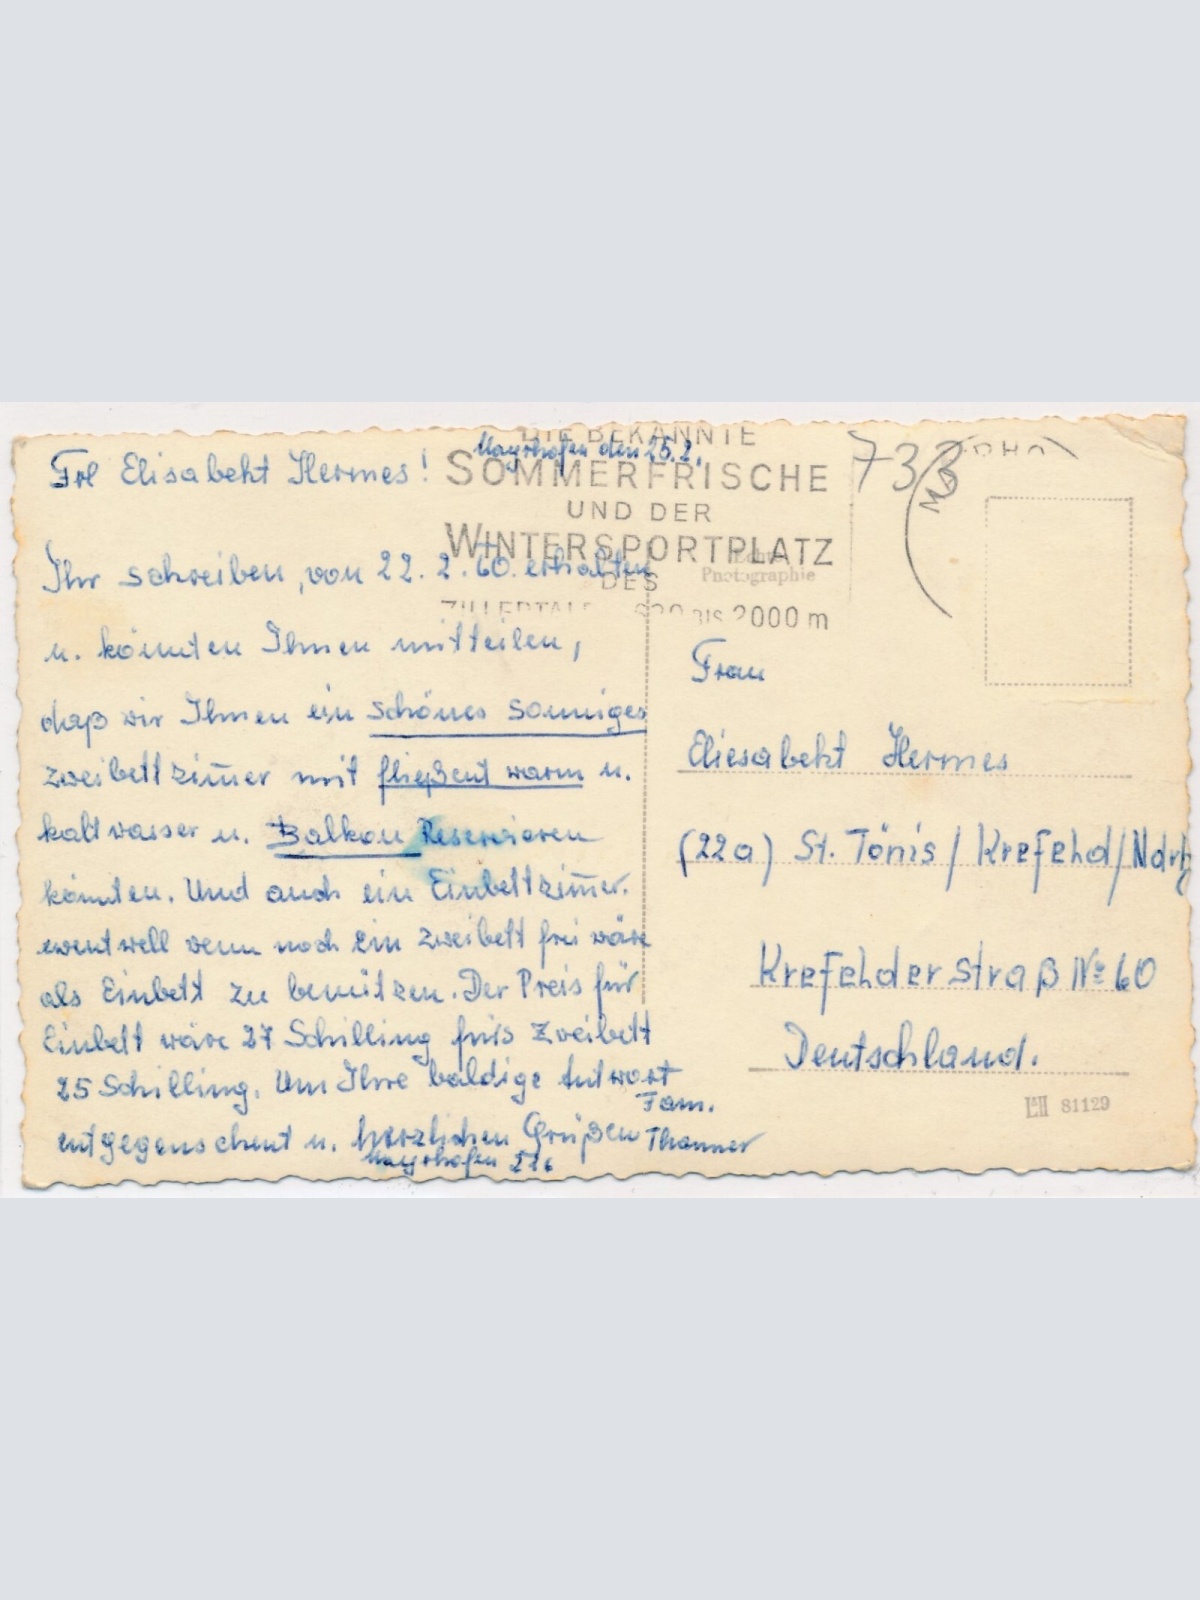 Mayrhofen den 25.2.
Frl Elisabeht Hermes!
Ihr schreiben, von 22. 2. 60. erhalten
u. könnten Ihnen mitteilen,
daß wir Ihnen ein schönes Sonniges
zweibettzim̅er mit fließent warm u.
kaltwasser u. Balkon Reservieren
könnten. Und auch ein Einbettzim̅er.
eventwell wenn noch ein zweibett frei wäre
als Einbett zu benützen. Der Preis für
Einbett wäre 27 Schilling fürs Zweibett
25 Schilling. Um Ihre baldige Antwort
entgegensehent u. herzlichen Grüßen
Fam.
Thanner
Mayrhofen 226
DIE BEKANNTE
SOMMERFRISCHE
UND DER
WINTERSPORTPLATZ
DES
ZILLERTALES 630 BIS 2000 m
733
Echte
Photographie
Frau
Eliesabeht Hermes
(22a) St. Tönis / Krefehd / Ndrh
Krefehderstraß No 60
Deutschland.
81129